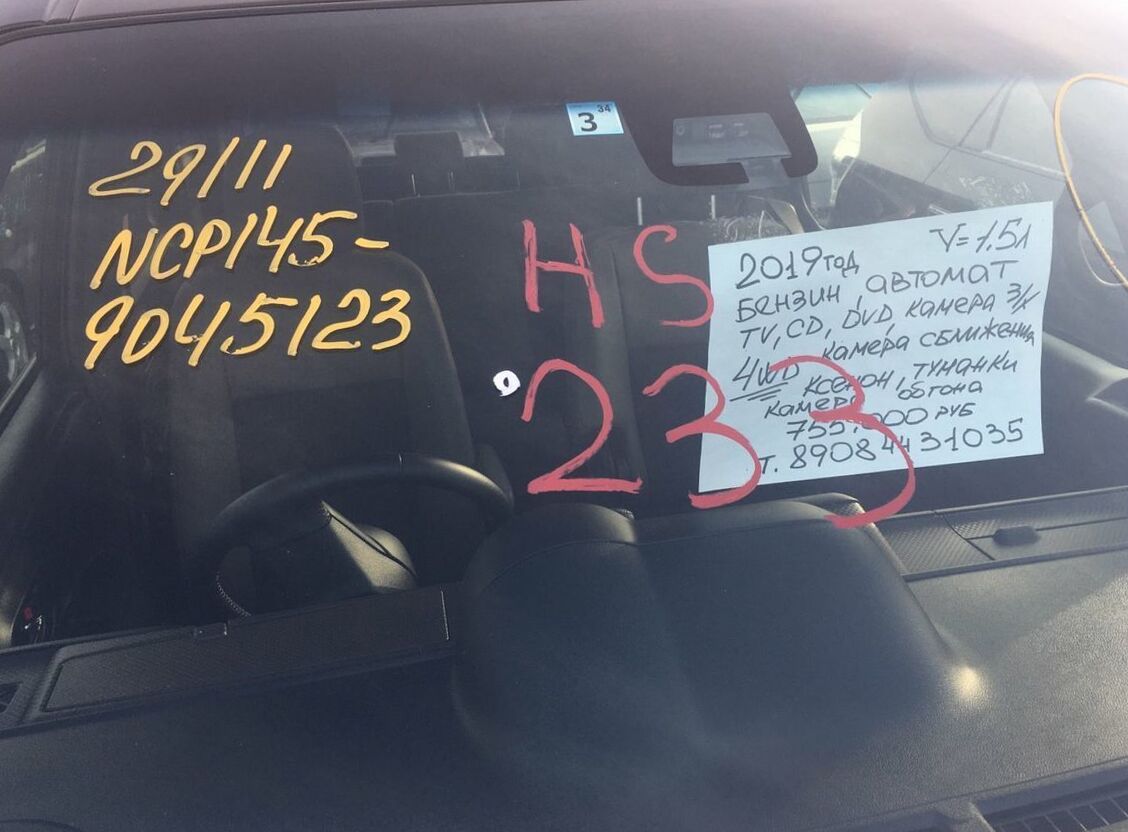 29/11
NCP145-
9045123
3 34
HS
233
2019 год V=1.5л
БЕНЗИН, АВТОМАТ
TV, CD, DVD, КАМЕРА З/Х
КАМЕРА СБЛИЖЕНИЯ
4WD КСЕНОН, ТУМАНКИ
КАМЕРА ОБГОНА
755.000 РУБ
т. 89084431035